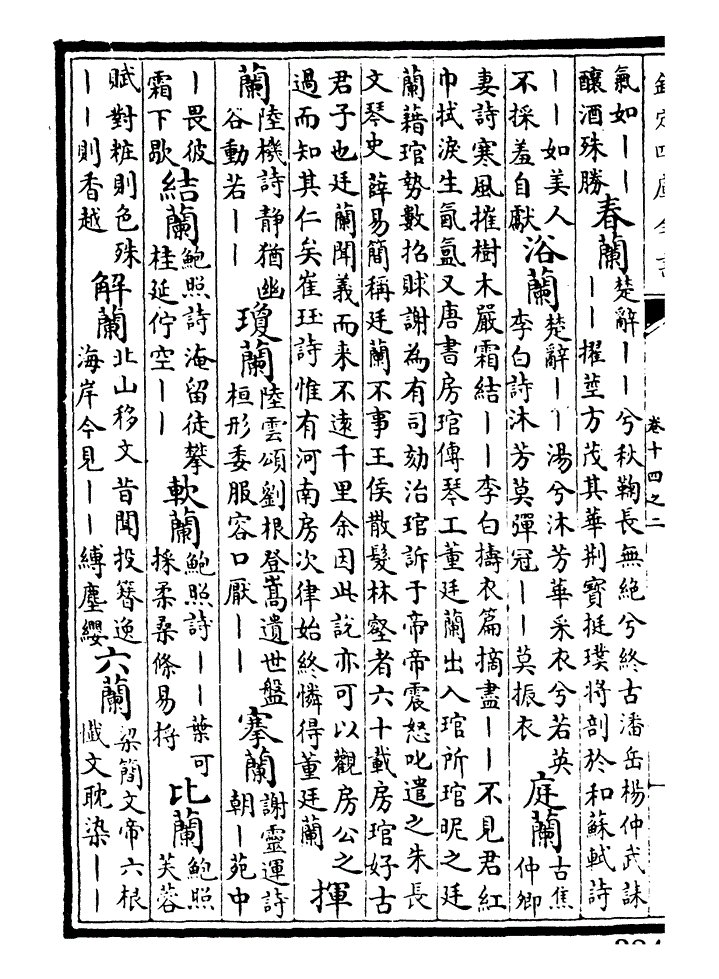 欽定四庫全書
卷十四之二
氣如｜｜
釀酒殊勝
春蘭
楚辭｜｜兮秋鞠長無絕兮終古潘岳楊仲武誄
｜｜擢莖方茂其華荆寶挺璞將剖於和蘇軾詩
｜｜如美人
不採羞自獻
浴蘭
楚辭｜｜湯兮沐芳華采衣兮若英
李白詩沐芳莫彈冠｜｜莫振衣
庭蘭
古焦
仲卿
妻詩寒風摧樹木嚴霜結｜｜李白擣衣篇摘盡｜｜不見君紅
巾拭淚生氤氲又唐書房琯傳琴工董廷蘭出入琯所琯昵之廷
蘭藉琯勢數招賕謝為有司劾治琯訴于帝帝震怒叱遣之朱長
文琴史薛易簡稱廷蘭不事王侯散髮林壑者六十載房琯好古
君子也廷蘭聞義而来不遠千里余因此說亦可以觀房公之
過而知其仁矣崔珏詩惟有河南房次律始終憐得董廷蘭
揮
蘭
陸機詩静猶幽
谷動若｜｜
瓊蘭
陸雲頌劉根登嵩遺世盤
桓形委服容口厭｜｜
搴蘭
謝靈運詩
朝｜苑中
｜畏彼
霜下歇
結蘭
鮑照詩淹留徒攀
桂延佇空｜｜
軟蘭
鮑照詩｜｜葉可
採柔桑條易捋
比蘭
鮑照
芙蓉
賦對粧則色殊
｜｜則香越
解蘭
北山移文昔聞投簪逸
海岸今見｜｜縛塵纓
六蘭
梁簡文帝六根
懺文耽染｜｜